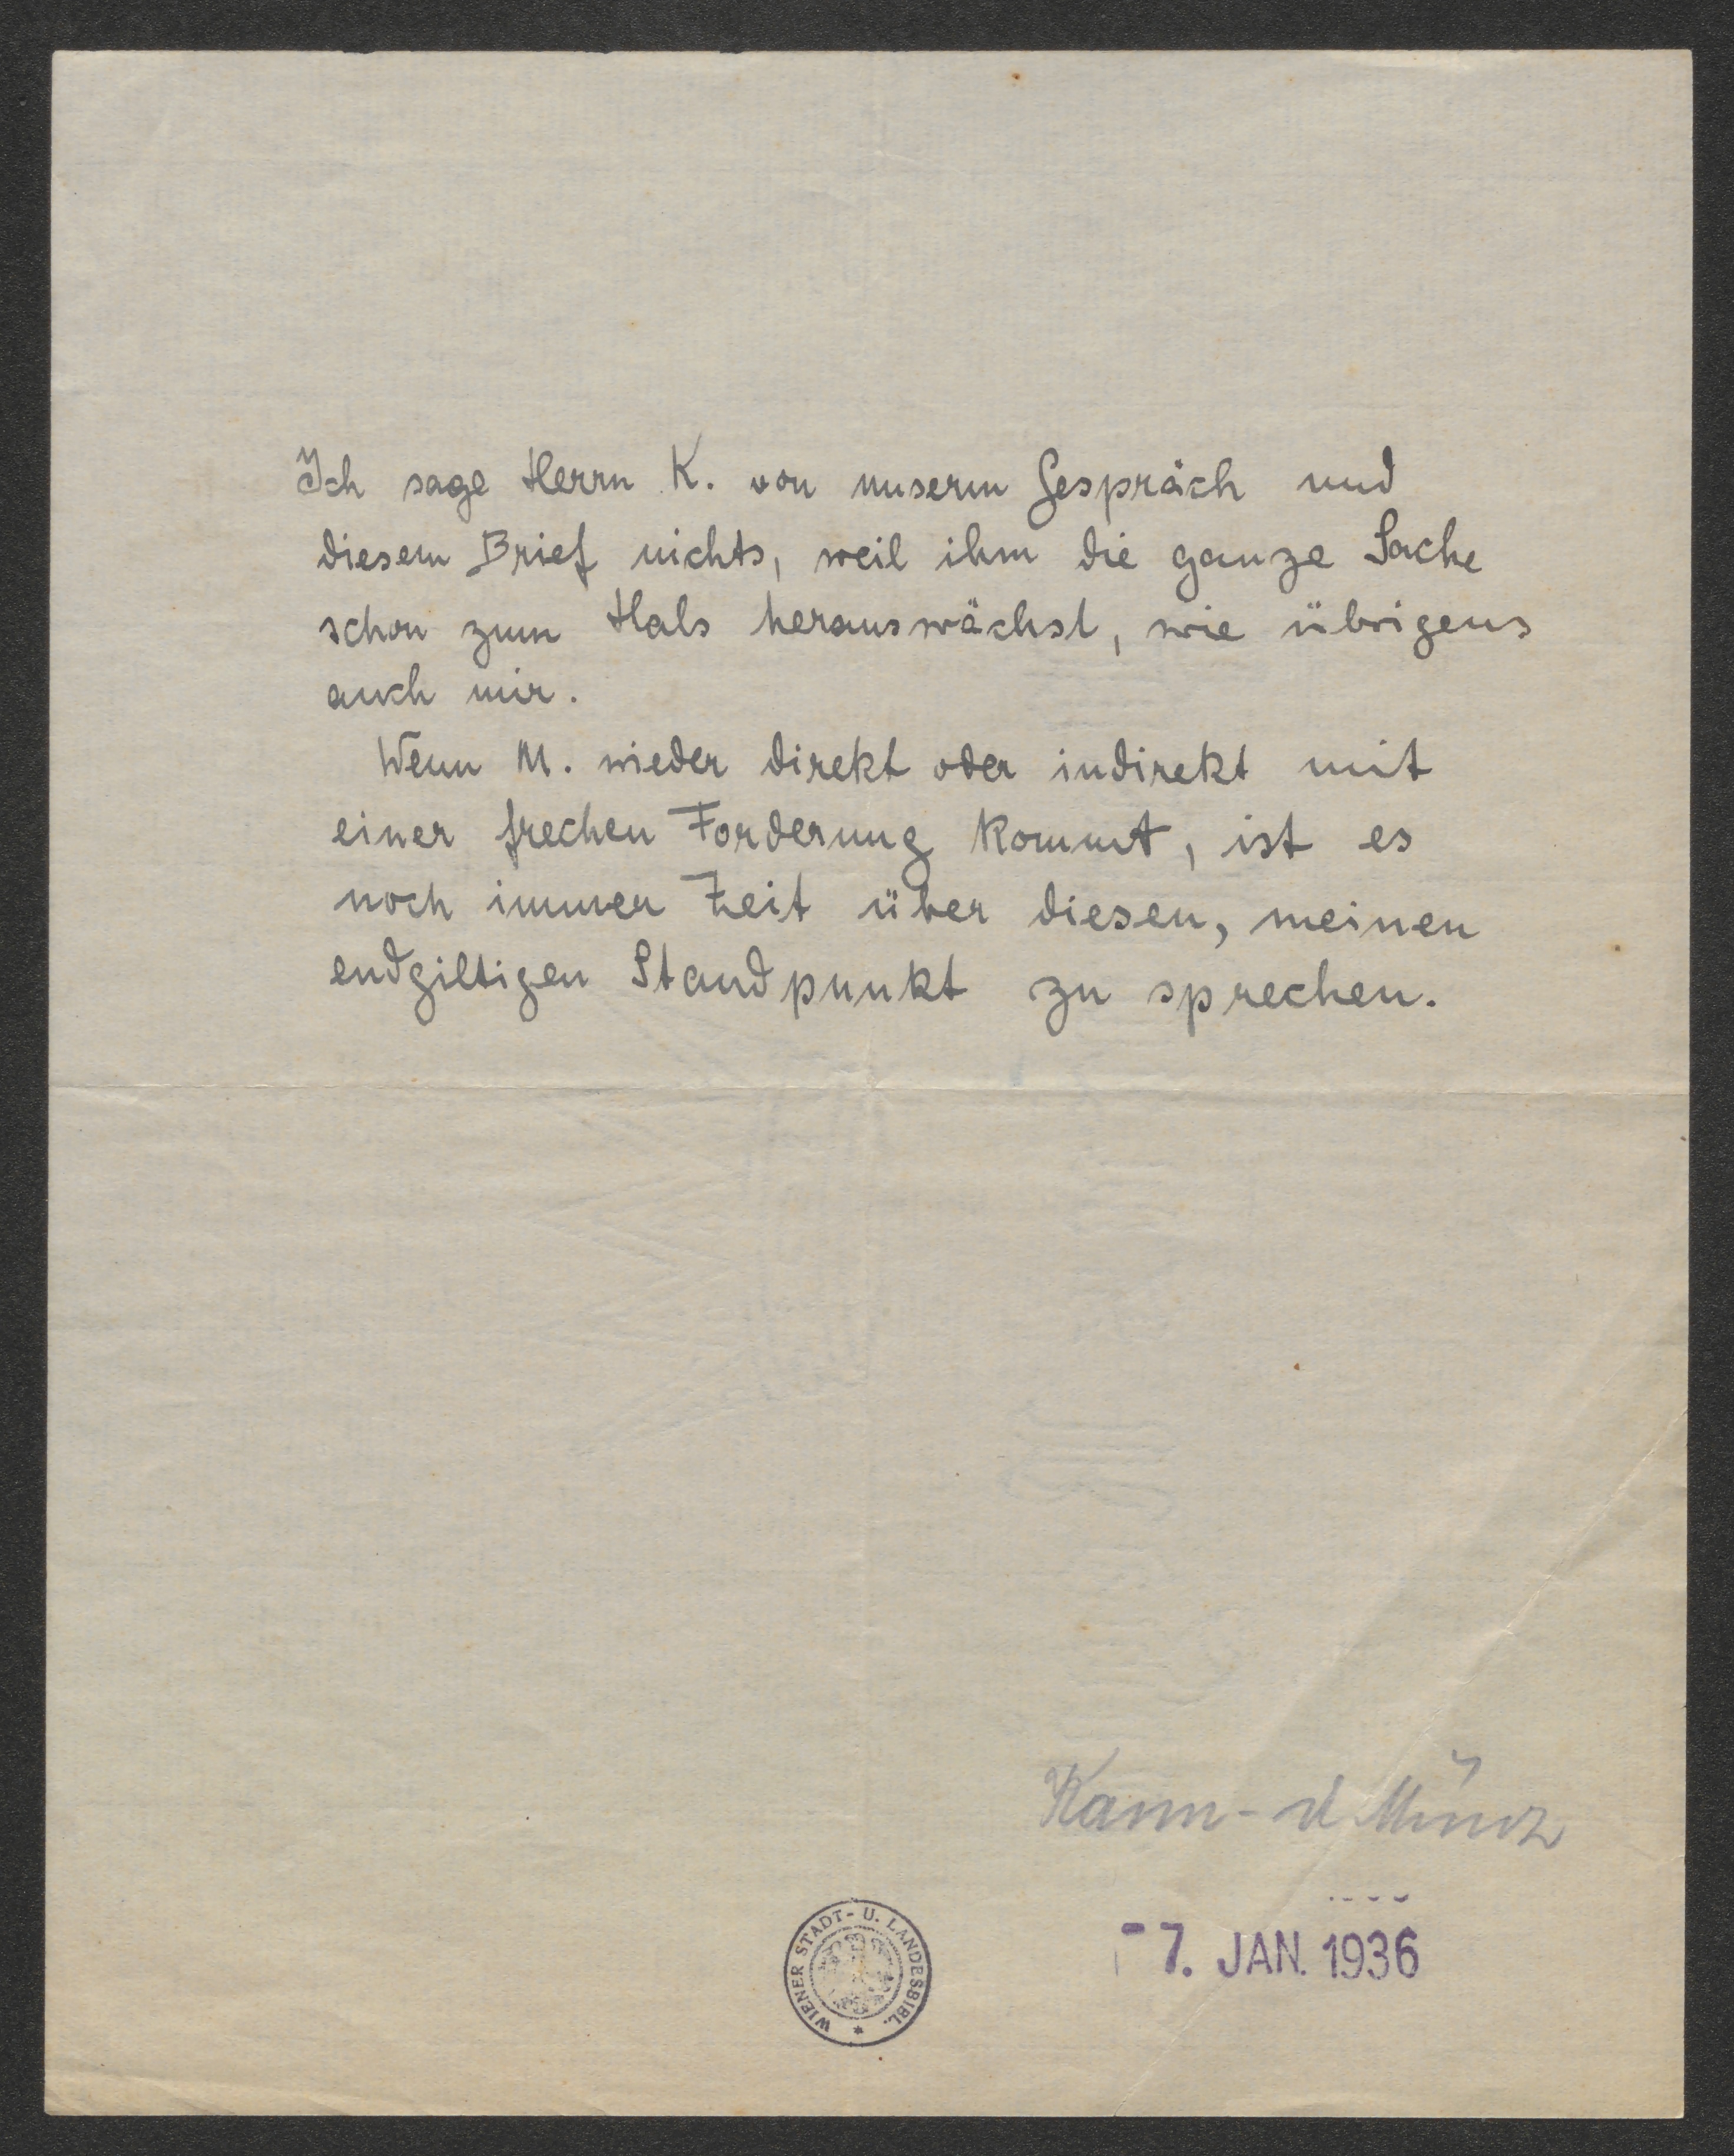 Ich sage Herrn K. von unserm Gespräch und
diesem Brief nichts, weil ihm die ganze Sache
schon zum Hals herauswächst, wie übrigens
auch mir.
Wenn M. wieder direkt oder indirekt mit
einer frechen Forderung kommt, ist es
noch immer Zeit über diesen, meinen
endgiltigen Standpunkt zu sprechen.
Kann-
WIENER STADT- U. LANDESBIBL.
7. JAN. 1936